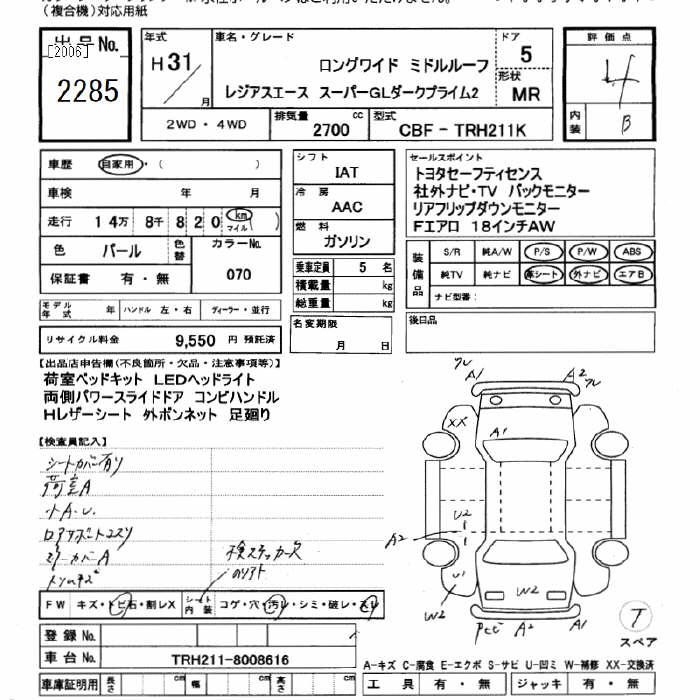 (複合機)対応用紙
出品No.
[2006]
2285
年式
H31
月
車名・グレード
ロングワイド ミドルルーフ
レジアスエース スーパーGLダークプライム2
ドア
5
形状
MR
2WD・4WD
排気量
2700
cc
型式
CBF-TRH211K
評価点
4
内装
B
車歴 自家用・( )
車検 年 月
走行 14万 8千 820 km マイル ( )
色 パール 色替 カラーNo. 070
保証書 有・無
モデル年式 年 ハンドル 左・右 ディーラー・並行
リサイクル料金 9,550 円 預託済
シフト
IAT
冷房
AAC
燃料
ガソリン
乗車定員 5 名
積載量 kg
総重量 kg
名変期限
月 日
セールスポイント
トヨタセーフティセンス
社外ナビ・TV バックモニター
リアフリップダウンモニター
Fエアロ 18インチAW
装備品
S/R 純A/W P/S P/W ABS
純TV 純ナビ 革シート 外ナビ エアB
ナビ型番:
後日品
【出品店申告欄(不良箇所・欠品・注意事項等)】
荷室ベッドキット LEDヘッドライト
両側パワースライドドア コンビハンドル
Hレザーシート 外ボンネット 足廻り
【検査員記入】
シートカバー有り
荷室A
小A.U.
検ステッカー欠
FW キズ・トビ石・割レX
シート内装 コゲ・穴・汚レ・シミ・破レ・スレ
登録No.
車台No. TRH211-8008616
車庫証明用 長さ cm 幅 cm 高さ cm
A1
A2
XX
A1
U2
A2
U1
W2
W2
A2
A1
T
スペア
A-キズ C-腐食 E-エクボ S-サビ U-凹ミ W-補修 XX-交換済
工具 有・無 ジャッキ 有・無